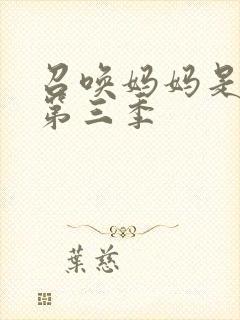 召唤妈妈是
第三季
葉慈